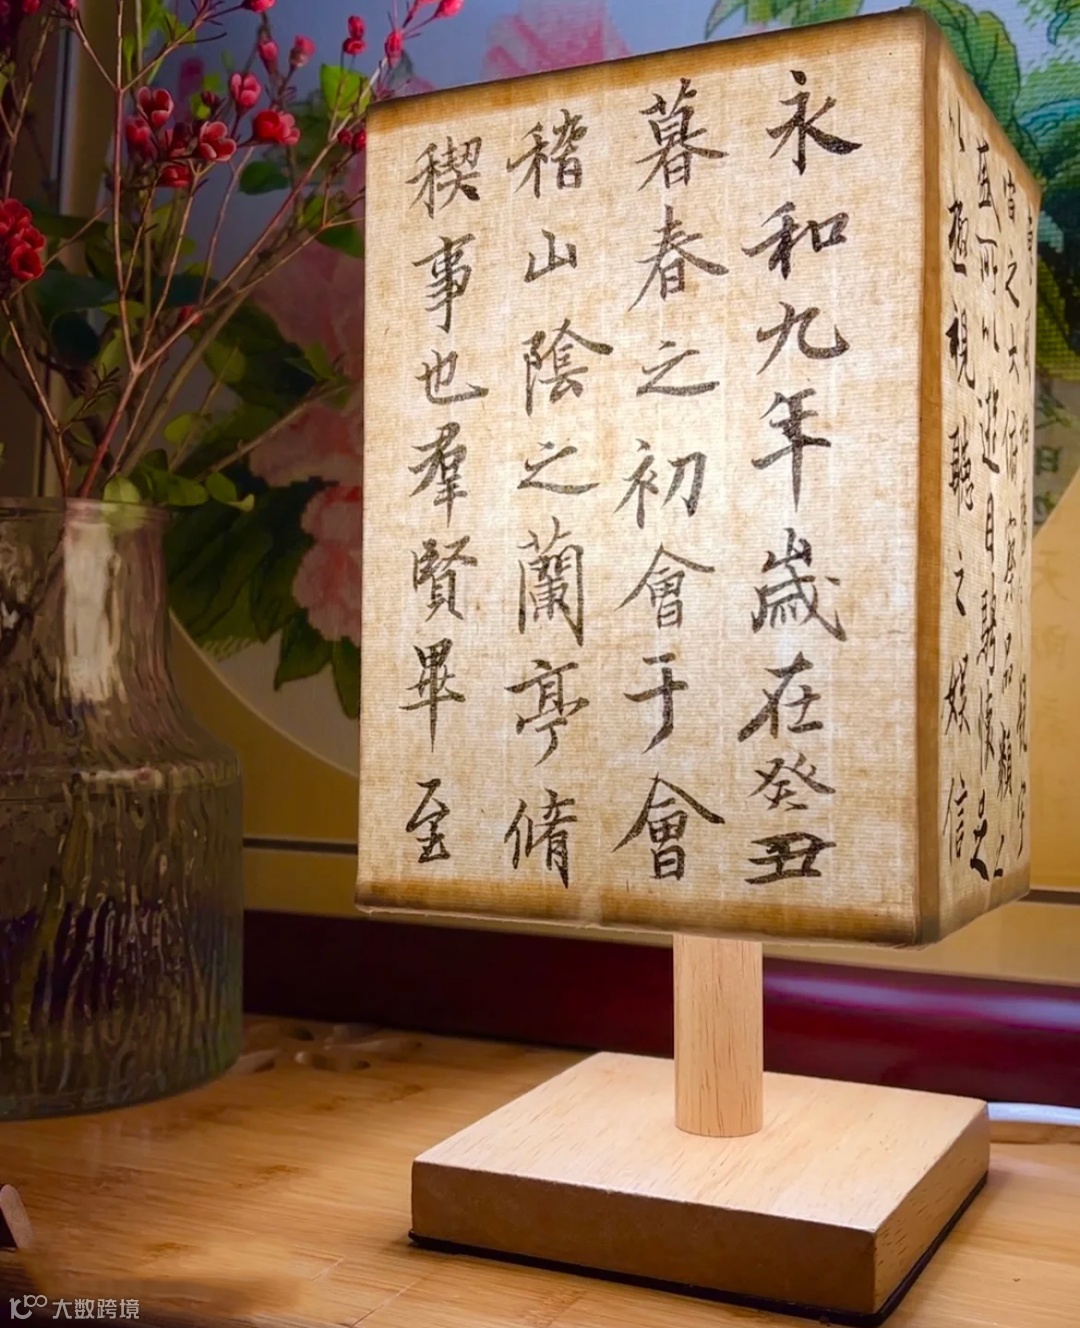 永和九年歲在癸丑
暮春之初會于會
稽山陰之蘭亭脩
稧事也羣賢畢至
宙之大俯察品類之
盛所以遊目騁懷足
以極視聽之娛信
大数跨境